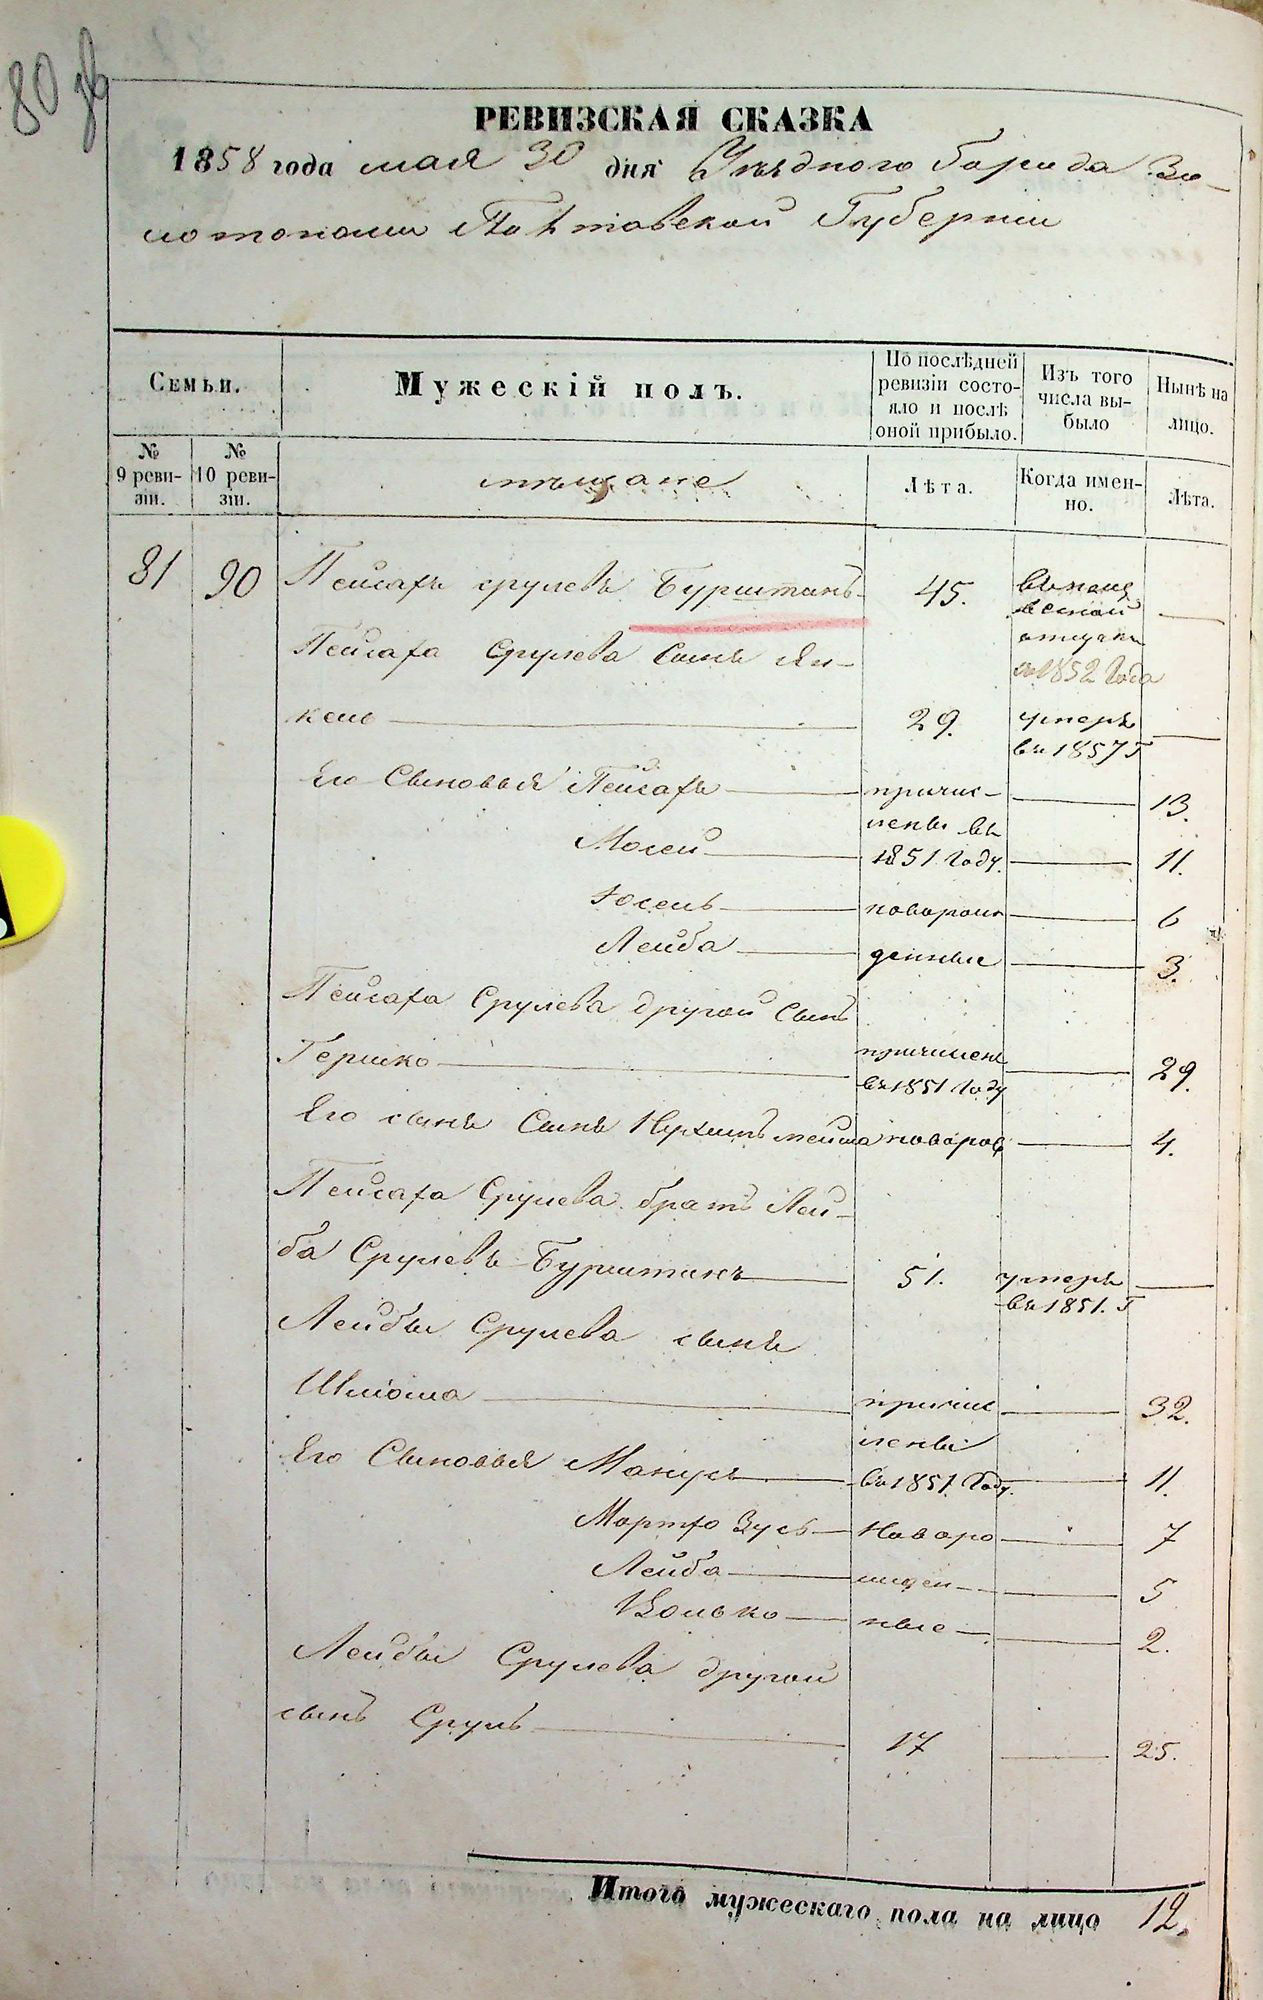 80 об
РЕВИЗСКАЯ СКАЗКА
1858 года мая 30 дня Уѣзднаго Города Зо-
лотоноши Полтавской Губерніи
Семьи.
Мужескій полъ.
По послѣдней ревизіи состояло и послѣ оной прибыло.
Изъ того числа выбыло
Нынѣ на лицо.
№ 9 ревизіи.
№ 10 ревизіи.
мѣщане
Лѣта.
Когда именно.
Лѣта.
81 90 Пейсахъ Срулевъ Бурштинъ 45. отлучки
съ 1852 Года
Пейсаха Срулева Сынъ Ян-
кель 29. умеръ
въ 1857 Г
Его Сыновья Пейсахъ причис- 13.
лены въ
Мосей 1851 Году. 11.
Іосель новорож 6
Лейба денные 3.
Пейсаха Срулева другой Сынъ
Гершко причисленъ 29.
въ 1851 Году
Его сынъ Сынъ Нухимъ мейша новорож 4.
Пейсаха Срулева братъ Лей-
ба Срулевъ Бурштинъ 51. умеръ
въ 1851. Г
Лейбы Срулева сынъ
Шліома причис 32.
лены
Его Сыновья въ 1851 Году. 11.
Мортхо Зусь Новоро 7
Лейба жден 5
Волько ные 2.
Лейбы Срулева другой
сынъ Сруль 17 25.
Итого мужескаго пола на лицо 12.